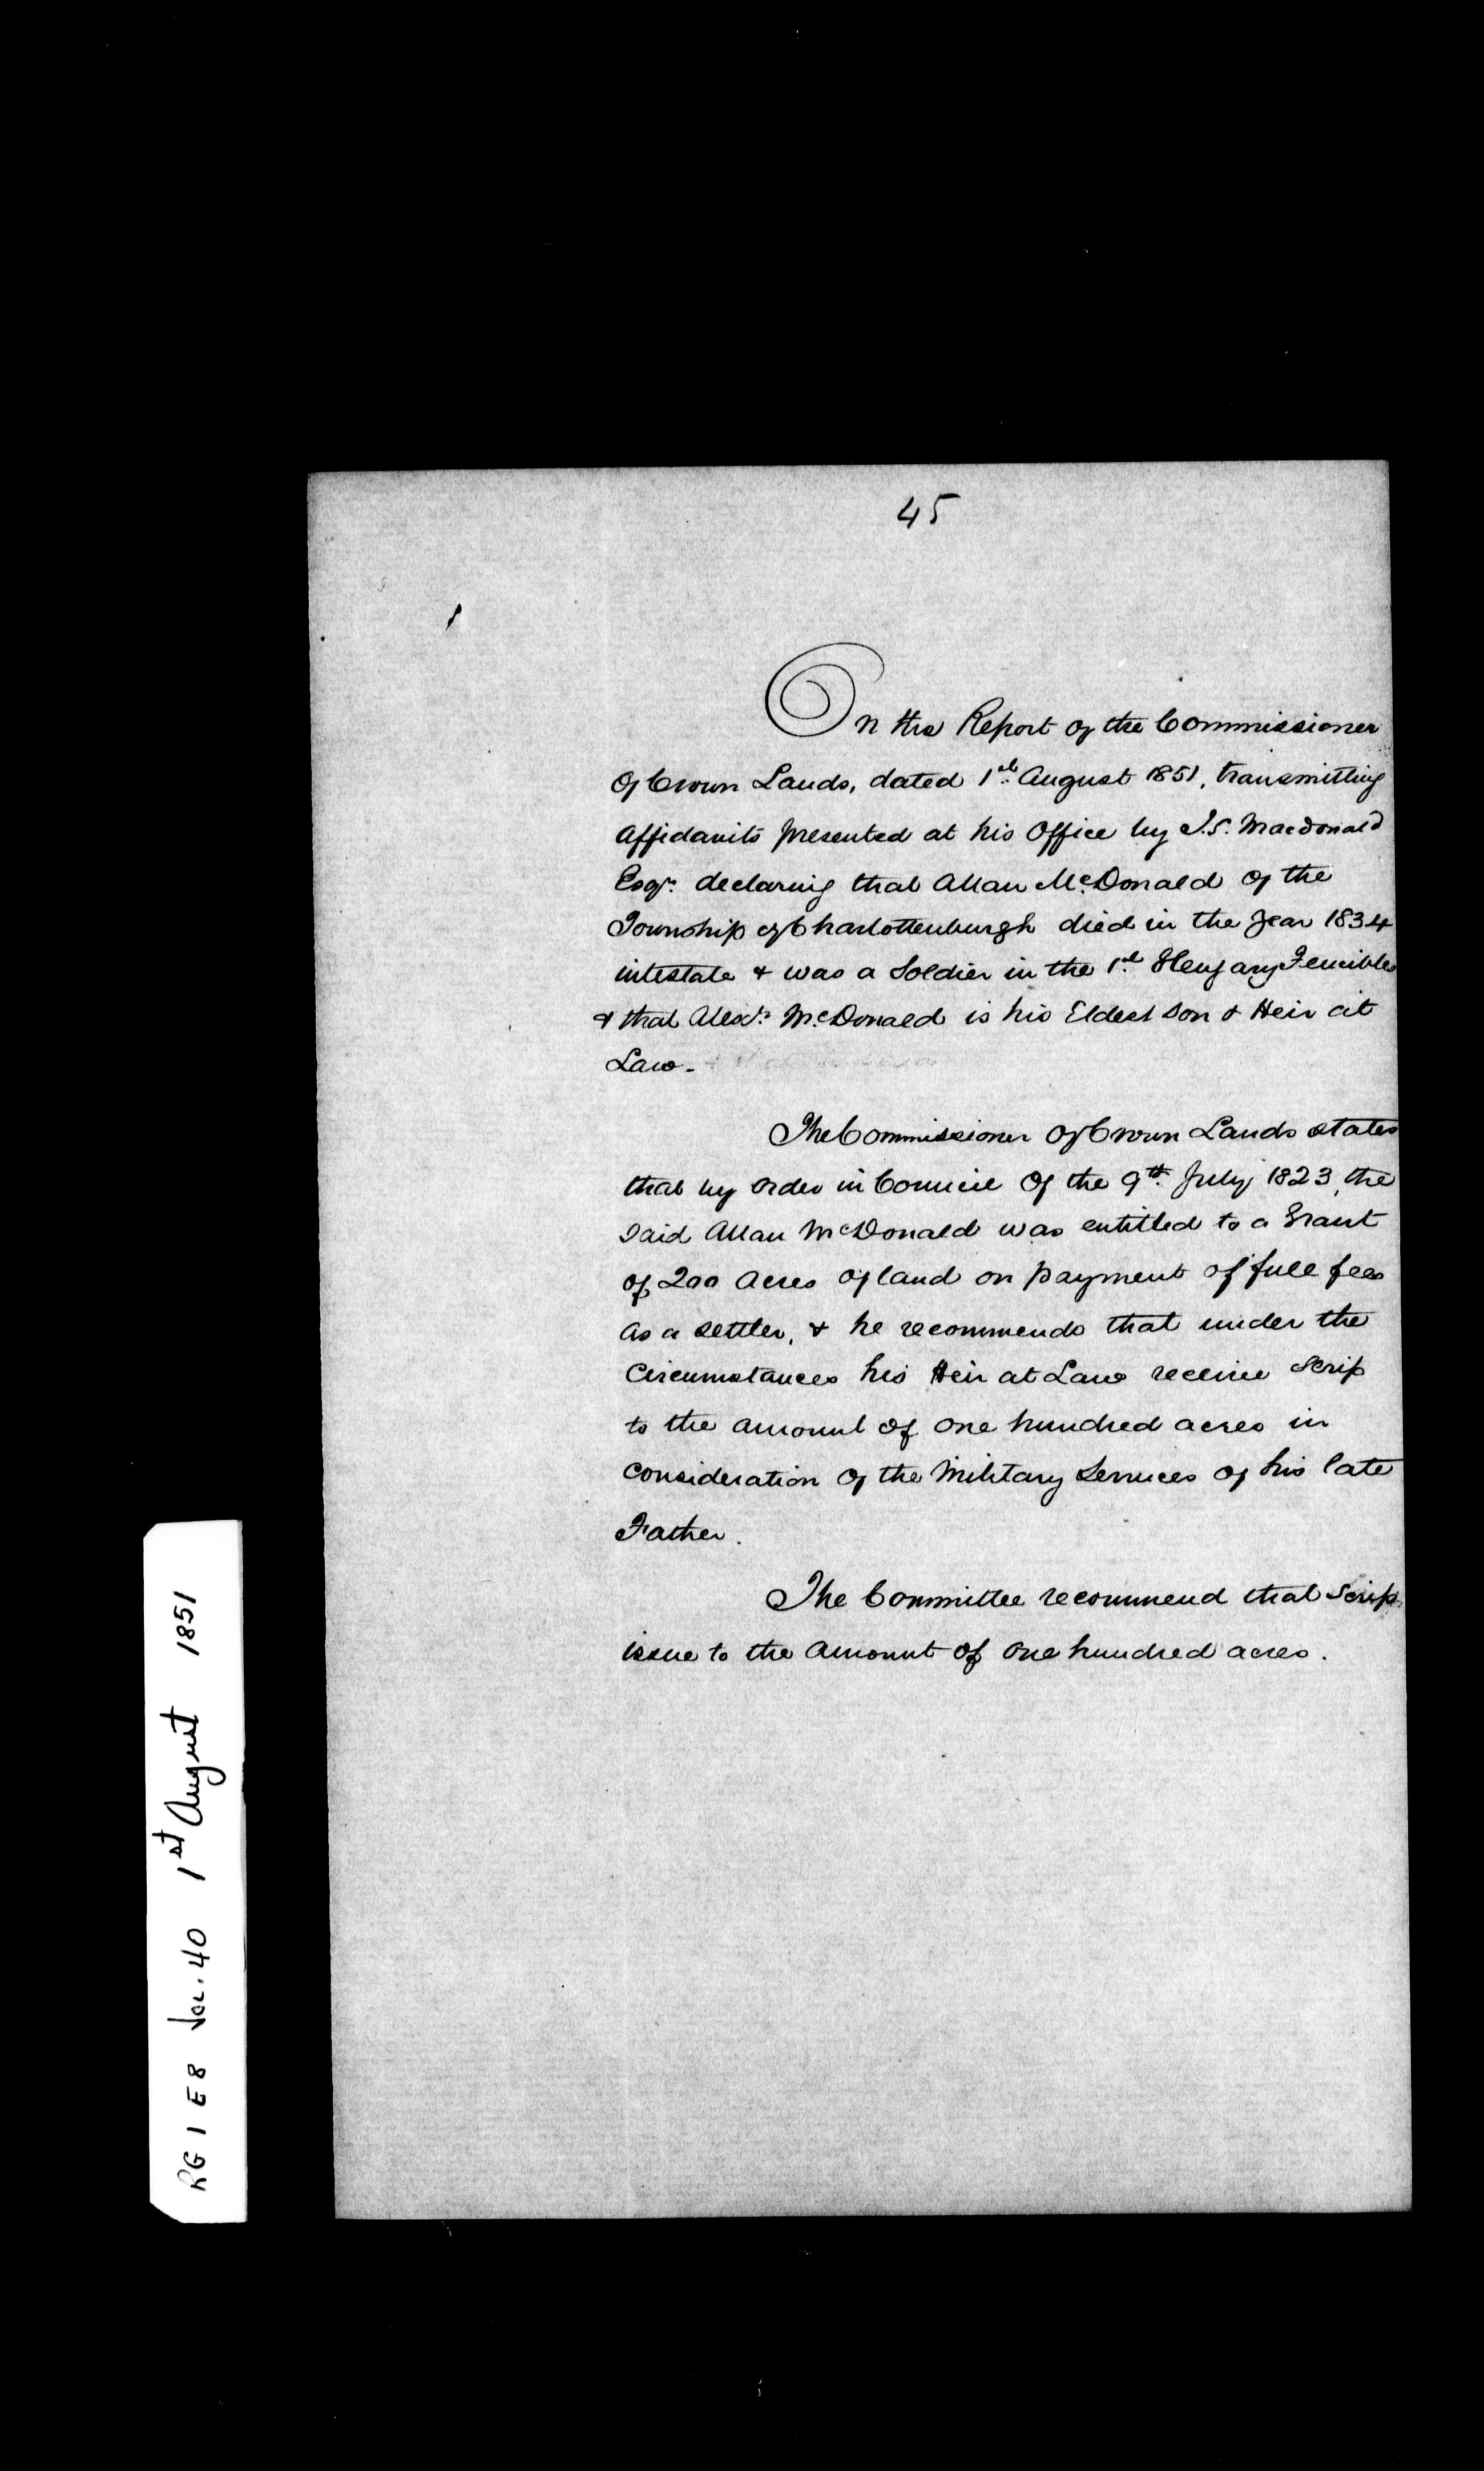 45
On the Report of the Commissioner
Of Crown Lands, dated 1st August 1851, transmitting
Affidavits presented at his Office by J.S. Macdonald
Esqr. declaring that Allan McDonald of the
Township of Charlottenburgh died in the year 1834
intestate & was a Soldier in the 1st Glengary Fencibles
& that Alexr. McDonald is his Eldest Son & Heir at
Law.-
The Commissioner Of Crown Lands states
that by order in Council Of the 9th July 1823, the
said Allan McDonald was entitled to a Grant
of 200 Acres of land on payment of full fees
as a settler, & he recommends that under the
Circumstances his Heir at Law receive Scrip
to the amount of one hundred acres in
consideration of the Military Services of his late
Father.
The Committee recommend that Scrip
issue to the Amount of One hundred acres.
RG 1 E8 Vol. 40 1st August 1851